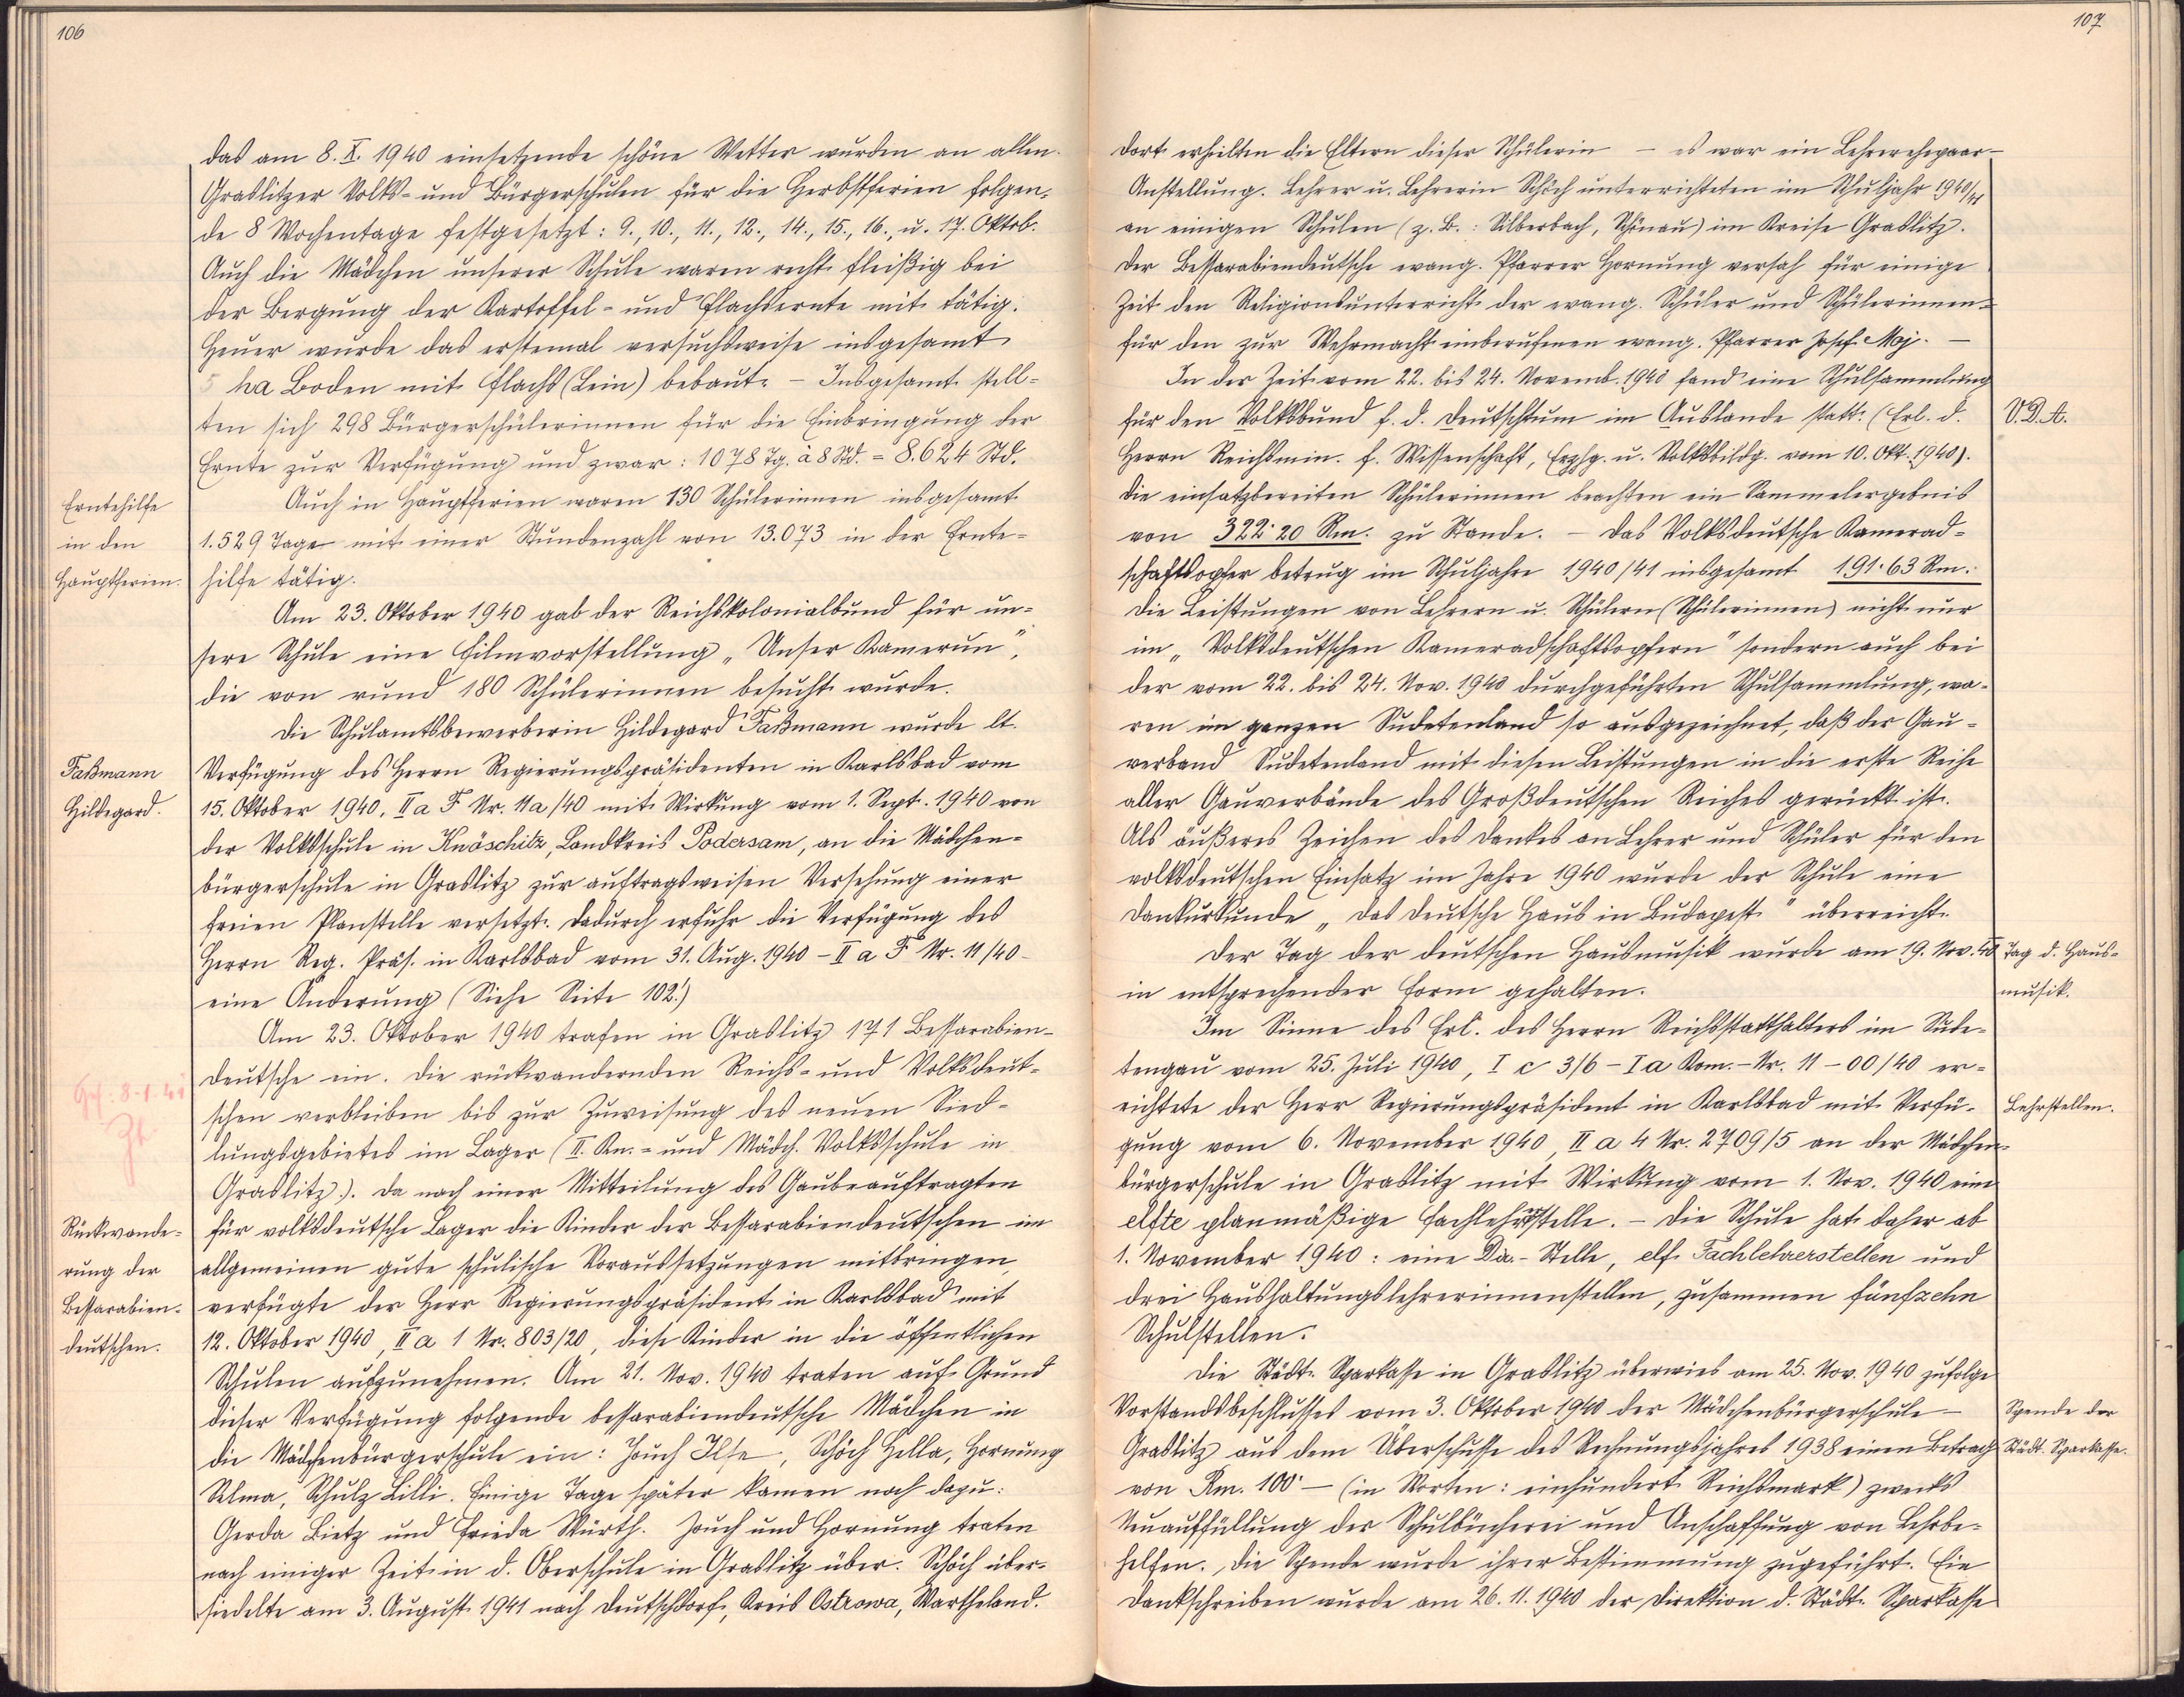 106
das am 8. X. 1940 einsetzende schöne Wetter wurden an allen
Graslitzer Volks- und Bürgerschulen für die Herbstferien folgen-
de 8 Wochentage festgesetzt: 9., 10., 11., 12., 14., 15., 16., u. 17. Oktob.
Auch die Mädchen unserer Schule waren recht fleißig bei
der Bergung der Kartoffel- und Flachsernte mit tätig.
Heuer wurde das erstemal versuchsweise insgesamt
5 ha Boden mit Flachs (Lein) bebaut. – Insgesamt stell-
ten sich 298 Bürgerschülerinnen für die Einbringung der
Ernte zur Verfügung und zwar: 1078 Tg. à 8 Std. = 8.624 Std.
Erntehilfe
in den
Hauptferien.
Auch in Hauptferien waren 130 Schülerinnen insgesamt
1.529 Tage mit einer Stundenzahl von 13.073 in der Ernte-
hilfe tätig.
Am 23. Oktober 1940 gab der Reichskolonialbund für un-
sere Schule eine Filmvorstellung „Unser Kamerun",
die von rund 180 Schülerinnen besucht wurde.
Die Schulamtsbewerberin Hildegard Faßmann wurde lt.
Faßmann
Hildegard.
Verfügung des Herrn Regierungspräsidenten in Karlsbad vom
15. Oktober 1940, II a F Nr. 11a/40 mit Wirkung vom 1. Sept. 1940 von
der Volksschule in Knöschitz, Landkreis Podersam, an die Mädchen-
bürgerschule in Graslitz zur auftragsweisen Versehung einer
freien Planstelle versetzt. Dadurch erfuhr die Verfügung des
Herrn Reg. Präs. in Karlsbad vom 31. Aug. 1940 – II a F Nr. 11/40 –
eine Änderung (Siehe Seite 102!)
Am 23. Oktober 1940 trafen in Graslitz 171 Bessarabien-
deutsche ein. Die rückwandernden Reichs- und Volksdeut-
8.1.41
schen verbleiben bis zur Zuweisung des neuen Sied-
lungsgebietes im Lager (II. Kn.- und Mädch. Volksschule in
Graslitz). Da nach einer Mitteilung des Gaubeauftragten
Rückwande-
rung der
Bessarabien-
deutschen.
für volksdeutsche Lager die Kinder der Bessarabiendeutschen im
allgemeinen gute schulische Voraussetzungen mitbringen,
verfügte der Herr Regierungspräsident in Karlsbad mit
12. Oktober 1940, II a 1 Nr. 803/20, diese Kinder in die öffentlichen
Schulen aufzunehmen. Am 21. Nov. 1940 traten auf Grund
dieser Verfügung folgende bessarabiendeutsche Mädchen in
die Mädchenbürgerschule ein: Jouch Ilse, Schöch Hella, Hornung
Selma, Schulz Lilli. Einige Tage später kamen noch dazu:
Gerda Bietz und Frieda Würth. Jouch und Hornung traten
nach einiger Zeit in d. Oberschule in Graslitz über. Schöch über-
siedelte am 3. August 1941 nach Deutschdorf, Kreis Ostrowa, Wartheland.
107
Dort erhielten die Eltern dieser Schülerin – es war ein Lehrerehepaar –
Anstellung. Lehrer u. Lehrerin Schöch unterrichteten im Schuljahr 1940/41
an einigen Schulen (z. B.: Silberbach, Schönau) im Kreise Graslitz.
Der Bessarabiendeutsche evang. Pfarrer Hornung versah für einige
Zeit den Religionsunterricht der evang. Schüler und Schülerinnen
für den zur Wehrmacht einberufenen evang. Pfarrer Josef Moj. –
In der Zeit vom 22. bis 24. Novemb. 1940 fand eine Schulsammlung
für den Volksbund f. d. Deutschtum im Auslande statt. (Erl. d.
V. D. A.
Herrn Reichsmin. f. Wissenschaft, Erzhg. u. Volksbildg. vom 10. Okt. 1940).
Die einsatzbereiten Schülerinnen brachten ein Sammelergebnis
von 322·20 Rm. zu Stande. – Das Volksdeutsche Kamerad-
schaftsopfer betrug im Schuljahre 1940/41 insgesamt 191·63 Rm.
Die Leistungen von Lehrern u. Schülern (Schülerinnen) nicht nur
im „Volksdeutschen Kameradschaftsopfern" sondern auch bei
der vom 22. bis 24. Nov. 1940 durchgeführten Schulsammlung, wa-
ren im ganzen Sudetenland so ausgezeichnet, daß der Gau-
verband Sudetenland mit diesen Leistungen in die erste Reihe
aller Gauverbände des Großdeutschen Reiches gerückt ist.
Als äußeres Zeichen des Dankes an Lehrer und Schüler für den
volksdeutschen Einsatz im Jahre 1940 wurde der Schule eine
Dankurkunde „Das deutsche Haus in Budapest" überreicht.
Der Tag der deutschen Hausmusik wurde am 19. Nov. 40
Tag d. Haus-
musik.
in entsprechender Form gehalten.
Im Sinne des Erl. des Herrn Reichsstatthalters im Sude-
tengau vom 25. Juli 1940, I c 3/6 – I a Kom.-Nr. 11 – 00/40 er-
richtete der Herr Regierungspräsident in Karlsbad mit Verfü-
Lehrstellen.
gung vom 6. November 1940, II a 4 Nr. 2709/5 an der Mädchen-
bürgerschule in Graslitz mit Wirkung vom 1. Nov. 1940 eine
elfte planmäßige Fachlehrstelle. – Die Schule hat daher ab
1. November 1940: eine Dir.-Stelle, elf Fachlehrerstellen und
drei Haushaltungslehrerinnenstellen, zusammen fünfzehn
Schulstellen.
Die Städt. Sparkasse in Graslitz überwies am 25. Nov. 1940 zufolge
Vorstandsbeschlusses vom 3. Oktober 1940 der Mädchenbürgerschule
Spende der
Städt. Sparkasse.
Graslitz aus dem Überschusse des Rechnungsjahres 1938 einen Betrag
von Rm. 100·– (in Worten: einhundert Reichsmark) zwecks
Neuauffüllung der Schulbücherei und Anschaffung von Lehrbe-
helfen. Die Spende wurde ihrer Bestimmung zugeführt. Ein
Dankschreiben wurde am 26. 11. 1940 der Direktion d. Städt. Sparkasse